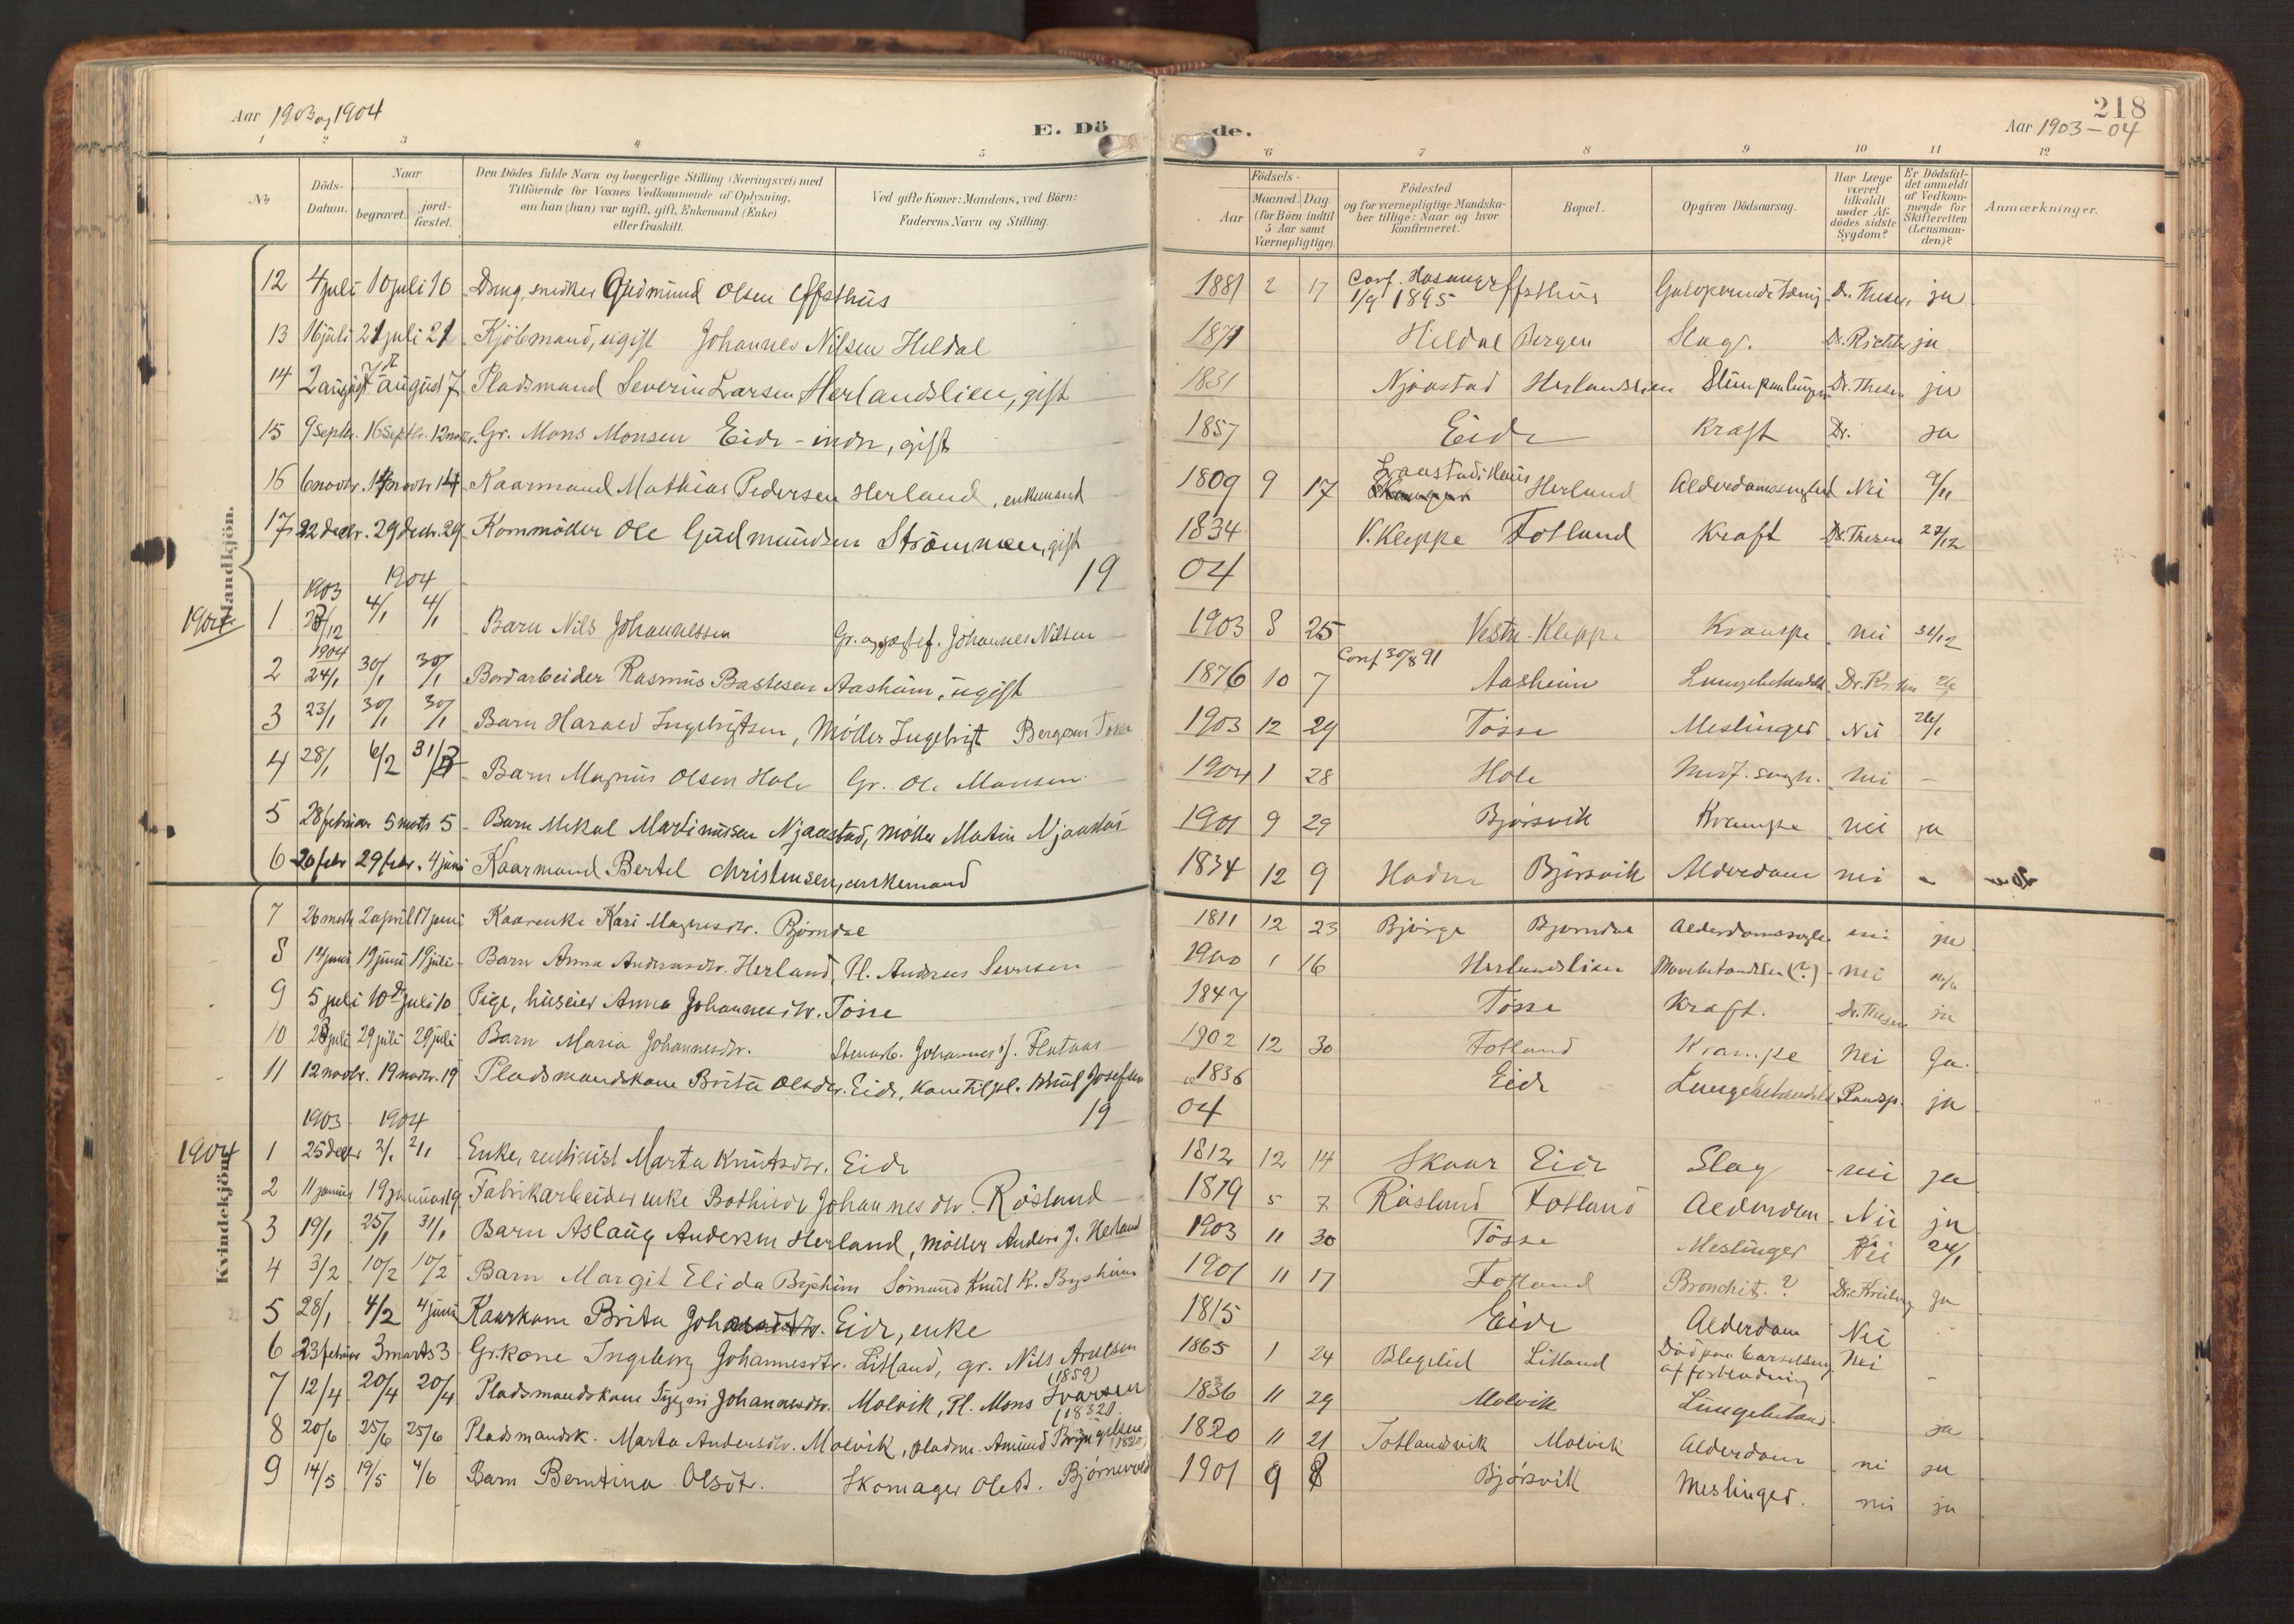 Aar 1903 og 1904
E. Döde.
218
Aar 1903-04
1 2 3 4 5 6 7 8 9 10 11 12
No
Döds-Datum.
Naar
begravet.
jord-fæstet.
Den Dödes fulde Navn og borgerlige Stilling (Næringsvei) med
Tilföiende for Voxnes Vedkommende af Oplysning,
om han (hun) var ugift, gift, Enkemand (Enke)
eller fraskilt.
Ved gifte Koner: Mandens, ved Börn:
Faderens Navn og Stilling.
Födsels-
Aar
Maaned Dag
(for Börn indtil
5 Aar samt
Værnepligtige)
Födested
og for værnepligtige Mandska-
ber tillige: Naar og hvor
konfirmeret.
Bopæl.
Opgiven Dödsaarsag.
Har Læge
været
tilkaldt
under Af-
dödes sidste
Sygdom?
Er Dödsfal-
det anmeldt
af Vedkom-
mende for
Skifteretten
(Lensman-
den)?
Anmærkninger.
Mandkjön.
12 4 juli 10 juli 10 Olsen 1881 2 17 Conf. 1/9 1895 Dr. Thesen ja
13 16 juli 21 juli 21 Kjöbmand, ugift Johannes Nilsen Heldal 1871 Hildal Bergen Slag. Dr. ja
14 2 august 7 august 7 Pladsmand Severin Larsen Herlandslien, gift 1831 Njaastad Herlandslien Dr. Thesen ja
15 9 Septbr. 16 Septbr. 12 novbr. Gr. Mons Monsen Eide-indre, gift 1857 Eide Kraft Dr. ja
16 6 novbr. 14 novbr 14 Kaarmand Mathias Pedersen Herland, enkemand 1809 9 17 Herland Nei 9/11
17 22 decbr. 29 decbr. 29 Kornmöller Ole Gudmundsen Strömmen, gift 1834 V. Kleppe Fotland Kraft Dr. Thesen 27/12
1903 1904 19 04
1904 1 4/1 4/1 Barn Nils Johannessen Gr. Johannes Nilsen 1903 8 25 Vestre Kleppe Krampe nei 31/12
1904
2 24/1 30/1 30/1 Bordarbeider Rasmus Bastesen Aasheim, ugift 1876 10 7 Conf 30/8 91 Aasheim Dr.
3 23/1 30/1 30/1 Barn Harald Ingebrigtsen, Möller Ingebrigt Bergesen Tösse 1903 12 29 Tösse Meslinger Nei 26/1
4 28/1 6/2 Barn Magnus Olsen Hole Gr. Ole Monsen 1904 1 28 Hole nei -
5 28 februar 5 marts 5 Barn Mikal Martinussen Njaastad, möller Martin Njaastad 1901 9 29 Bjørsvik Krampe nei ja
6 20 febr 29 febr. 4 juni Kaarmand Bertel Christensen, enkemand 1834 12 9 Björsvik Alderdom nei -
7 26 marts 2 april 17 juni Kaarenke Kari Magnesdtr. Björndal 1811 12 23 Bjørge Bjørndal nei ja
8 14 juni 19 juni 19 juli Barn Anna Andersdtr. Herland, Pl. Andreas 1900 1 16 Herlandslien (?) nei
9 5 juli 10 juli 10 Pige, huseier Anna Johannesdtr. Tösse 1847 Tösse Kraft. Dr. Thesen ja
10 23 juli 29 juli 29 juli Barn Maria Johannesdtr. Stenarb. Johannes J. Flataas 1902 12 30 Fotland Krampe Nei Ja.
11 12 novbr. 19 novbr. 19 Pladsmandskone Brita Olsdtr. Eide, kone til pl. Josefsen 1836 Eide ja
1903 1904 19 04
Kvindekjön.
1904 1 25 decbr 2/1 2/1 Enke, Marta Knutsdtr. Eide 1812 12 14 Skaar Eide Slag nei ja
2 11 januar 19 januar 19 Fabrikarbeider enke Johannesdtr. Røsland 1819 5 7 Røsland Fotland Alderdom Nei ja
3 19/1 25/1 31/1 Barn Aslaug Andersen Herland, möller Anders J. Herland 1903 11 30 Tösse Meslinger Nei 24/1
4 3/2 10/2 10/2 Barn Margit Elida Byshein Sömand Knut K. Byshein 1901 11 17 Fotland Bronchit. ? Dr. ja
5 28/1 4/2 4 juni Kaarkone Brita Eide, enke 1815 Eide Alderdom Nei
6 23 februar 3 marts 3 Gr.kone Ingeborg Johannesdtr. Litland, gr. Nils Arnesen (1859) 1865 1 24 Litland Död paa barselseng af forblødning Nei -
7 12/4 20/4 20/4 Pladsmandskone Johannesdtr. Molvik, Pl. Mons Ivarsen (1832) 1836 11 29 Molvik ja
8 20/6 25/6 25/6 Pladsmandsk. Marta Andersdtr. Molvik, pladsm. Amund Brynjelsen (1820) 1820 11 21 Molvik Alderdom nei ja
9 14/5 19/5 4/6 Barn Berntina Olsdtr. Skomager Ole B. Bjørnevold 1901 9 8 Bjørsvik Meslinger. nei ja